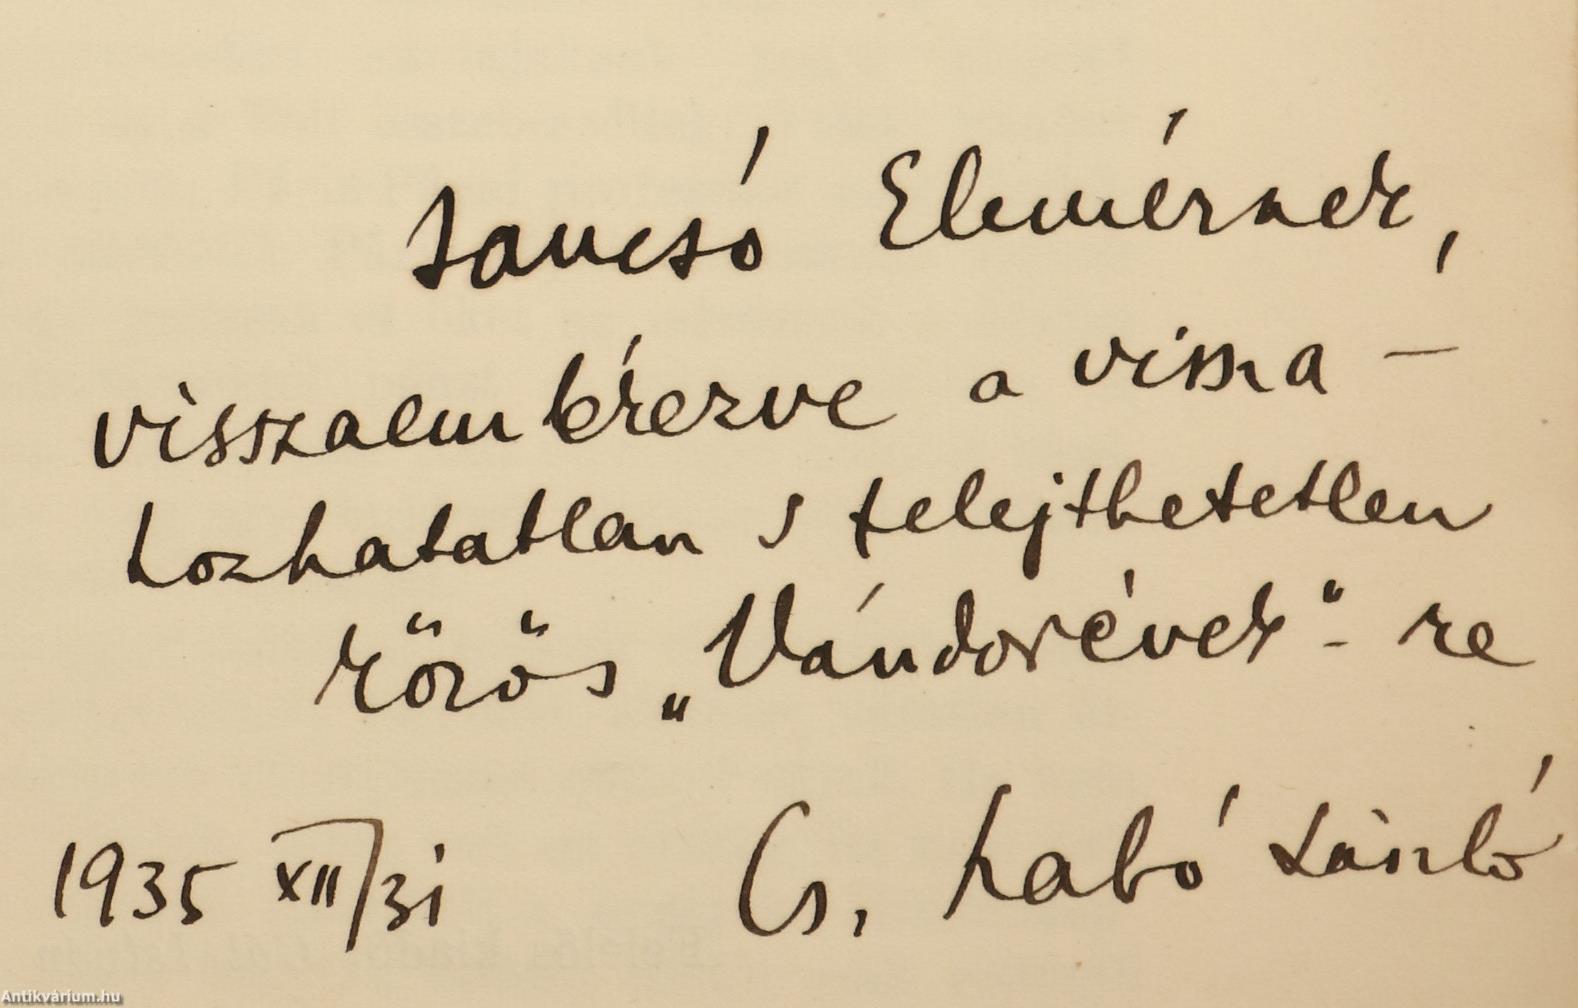 Jancsó Elemérnek,
visszaemlékezve a vissza-
hozhatatlan s felejthetetlen
közös „Vándorévek"-re
1935 XII/31 Cs. Szabó László
Antikvárium.hu